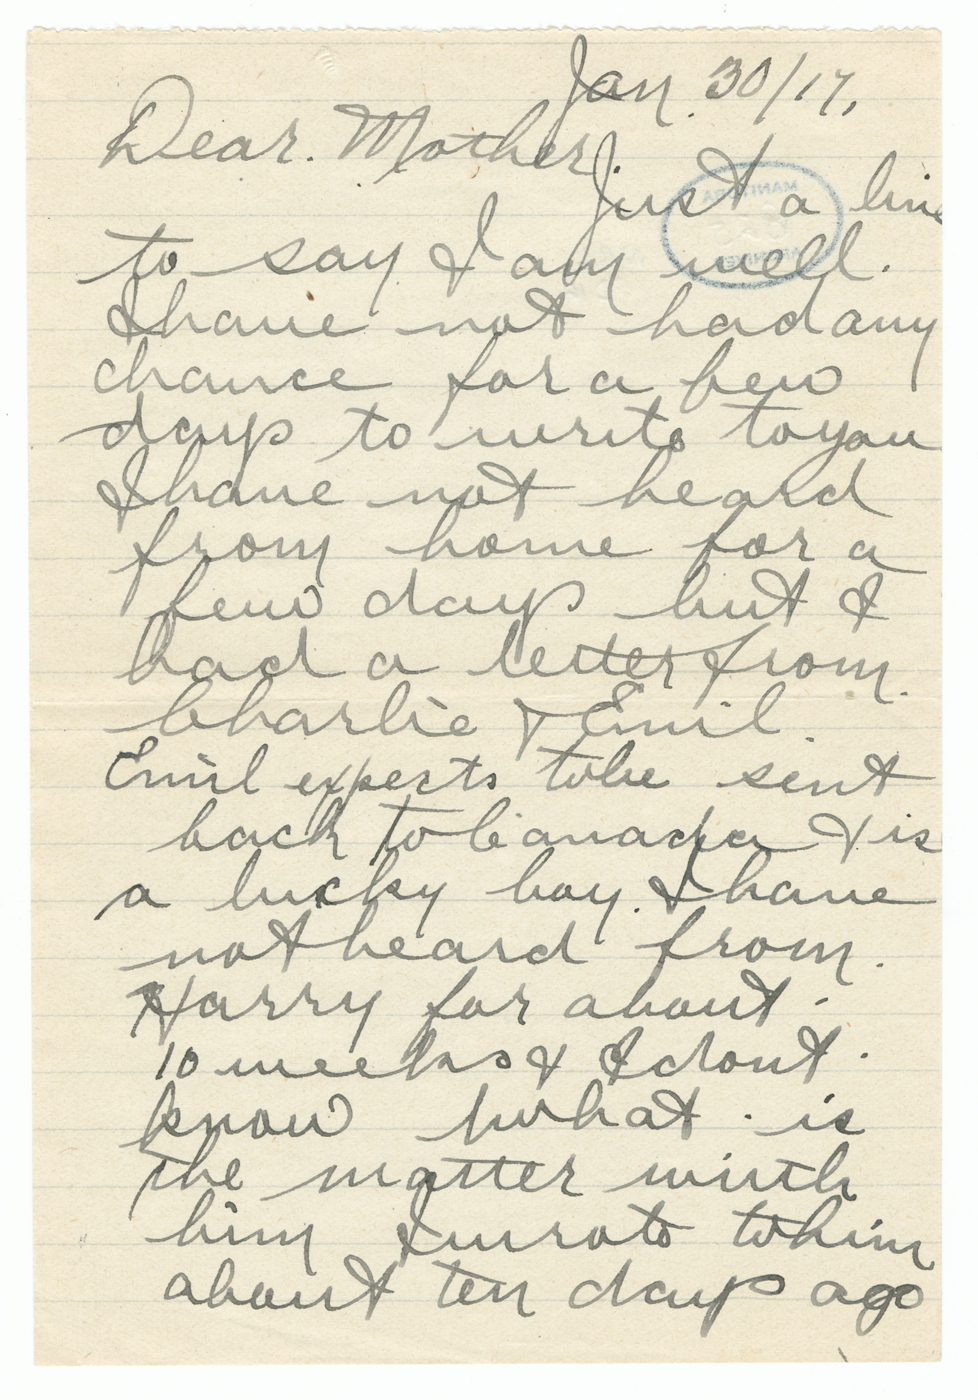 Jan. 30/17.
Dear. Mother.
Just a line
to say I am well.
I have not had any
chance for a few
days to write to you
I have not heard
from home for a
few days but I
had a letter from.
Charlie & Emil.
Emil expects to be sent
back to Canada & is
a lucky boy. I have
not heard from.
Harry for about.
10 weeks & I dont.
know what. is
the matter with
him I wrote to him
about ten days ago